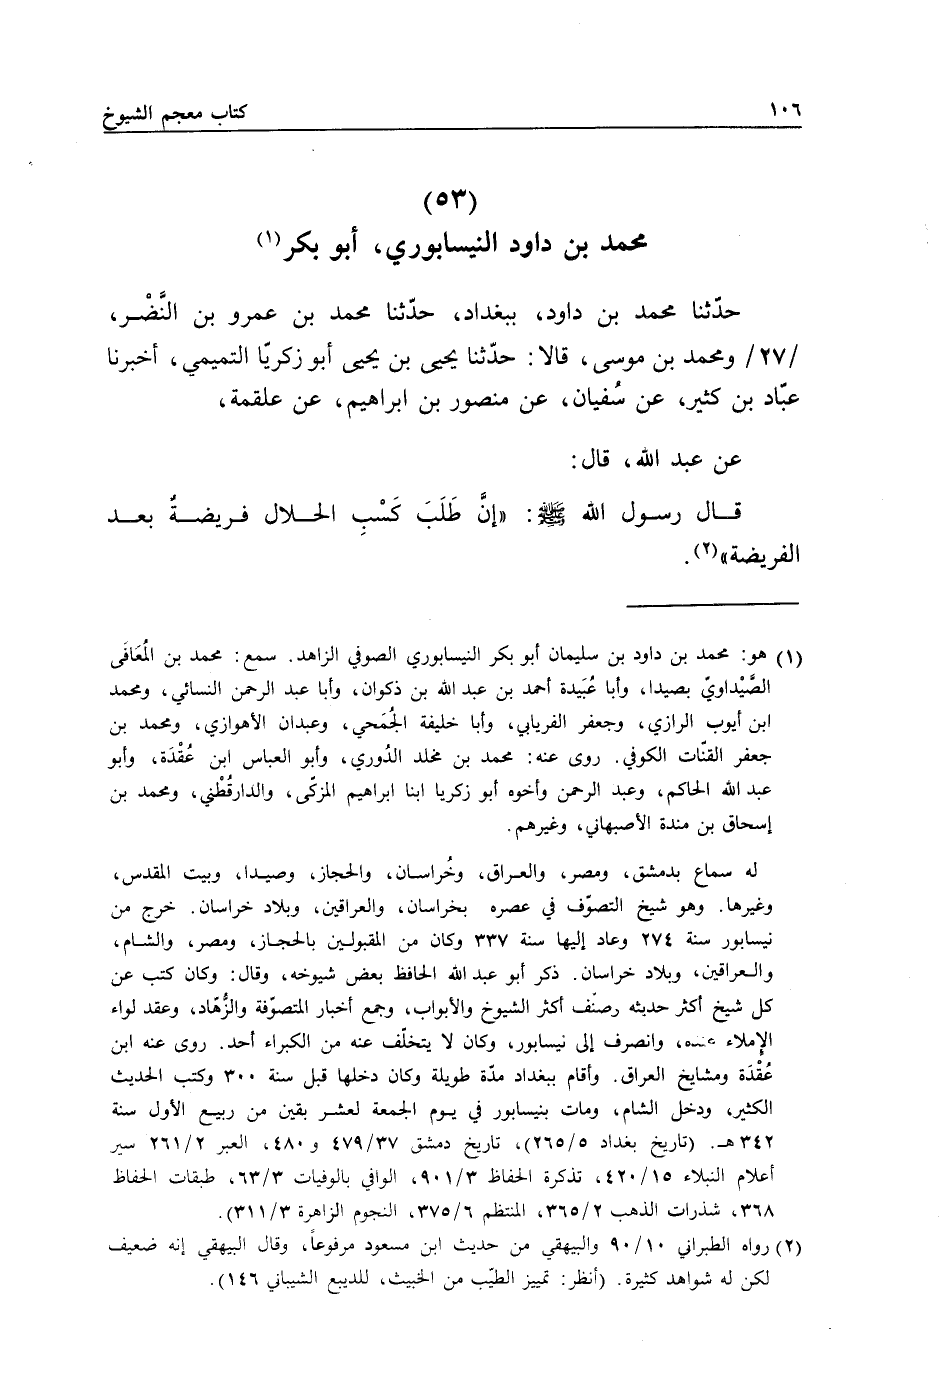 ١٠٦ كتاب معجم الشيوخ
(٥٣)
محمد بن داود النيسابوري، أبو بكر (١)
حدّثنا محمد بن داود، ببغداد، حدّثنا محمد بن عمرو بن النَّضْر،
/٢٧/ ومحمد بن موسى، قالا: حدّثنا يحيى بن يحيى أبو زكريّا التميمي، أخبرنا
عبّاد بن كثير، عن سُفيان، عن منصور بن ابراهيم، عن علقمة،
عن عبد الله، قال:
قال رسول الله ﷺ: «إنَّ طَلَبَ كَسْبِ الحلال فريضةٌ بعد
الفريضة»(٢).
(١) هو: محمد بن داود بن سليمان أبو بكر النيسابوري الصوفي الزاهد. سمع: محمد بن المُعَافَى
الصَّيْداويّ بصيدا، وأبا عُبَيدة أحمد بن عبد الله بن ذكوان، وأبا عبد الرحمن النسائي، ومحمد
ابن أيوب الرازي، وجعفر الفريابي، وأبا خليفة الجُمَحي، وعبدان الأهوازي، ومحمد بن
جعفر القتّات الكوفي. روى عنه: محمد بن مخلد الدُوري، وأبو العباس ابن عُقْدَة، وأبو
عبد الله الحاكم، وعبد الرحمن وأخوه أبو زكريا ابنا ابراهيم المزكّى، والدارقُطْني، ومحمد بن
إسحاق بن مندة الأصبهاني، وغيرهم.
له سماع بدمشق، ومصر، والعراق، وخُراسان، والحجاز، وصيدا، وبيت المقدس،
وغيرها. وهو شيخ التصوّف في عصره بخراسان، والعراقين، وبلاد خراسان. خرج من
نيسابور سنة ٢٧٤ وعاد إليها سنة ٣٣٧ وكان من المقبولين بالحجاز، ومصر، والشام،
والعراقين، وبلاد خراسان. ذكر أبو عبد الله الحافظ بعض شيوخه، وقال: وكان كتب عن
كل شيخ أكثر حديثه رصنّف أكثر الشيوخ والأبواب، وجمع أخبار المتصوّفة والزُّهّاد، وعقد لواء
الإملاء وانصرف إلى نيسابور، وكان لا يتخلّف عنه من الكبراء أحد. روى عنه ابن
عُقْدَة ومشايخ العراق. وأقام ببغداد مدّة طويلة وكان دخلها قبل سنة ٣٠٠ وكتب الحديث
الكثير، ودخل الشام، ومات بنيسابور في يوم الجمعة لعشر بقين من ربيع الأول سنة
٣٤٢هـ. (تاريخ بغداد ٢٦٥/٥)، تاريخ دمشق ٤٧٩/٣٧ و٤٨٠، العبر ٢٦١/٢ سير
أعلام النبلاء ٤٢٠/١٥، تذكرة الحفاظ ٩٠١/٣، الوافي بالوفيات ٦٣/٣، طبقات الحفاظ
٣٦٨، شذرات الذهب ٣٦٥/٢، المنتظم ٣٧٥/٦، النجوم الزاهرة ٣١١/٣).
(٢) رواه الطبراني ٩٠/١٠ والبيهقي من حديث ابن مسعود مرفوعاً، وقال البيهقي إنه ضعيف
لكن له شواهد كثيرة. (أنظر: تمييز الطيّب من الخبيث، للديبع الشيباني ١٤٦).